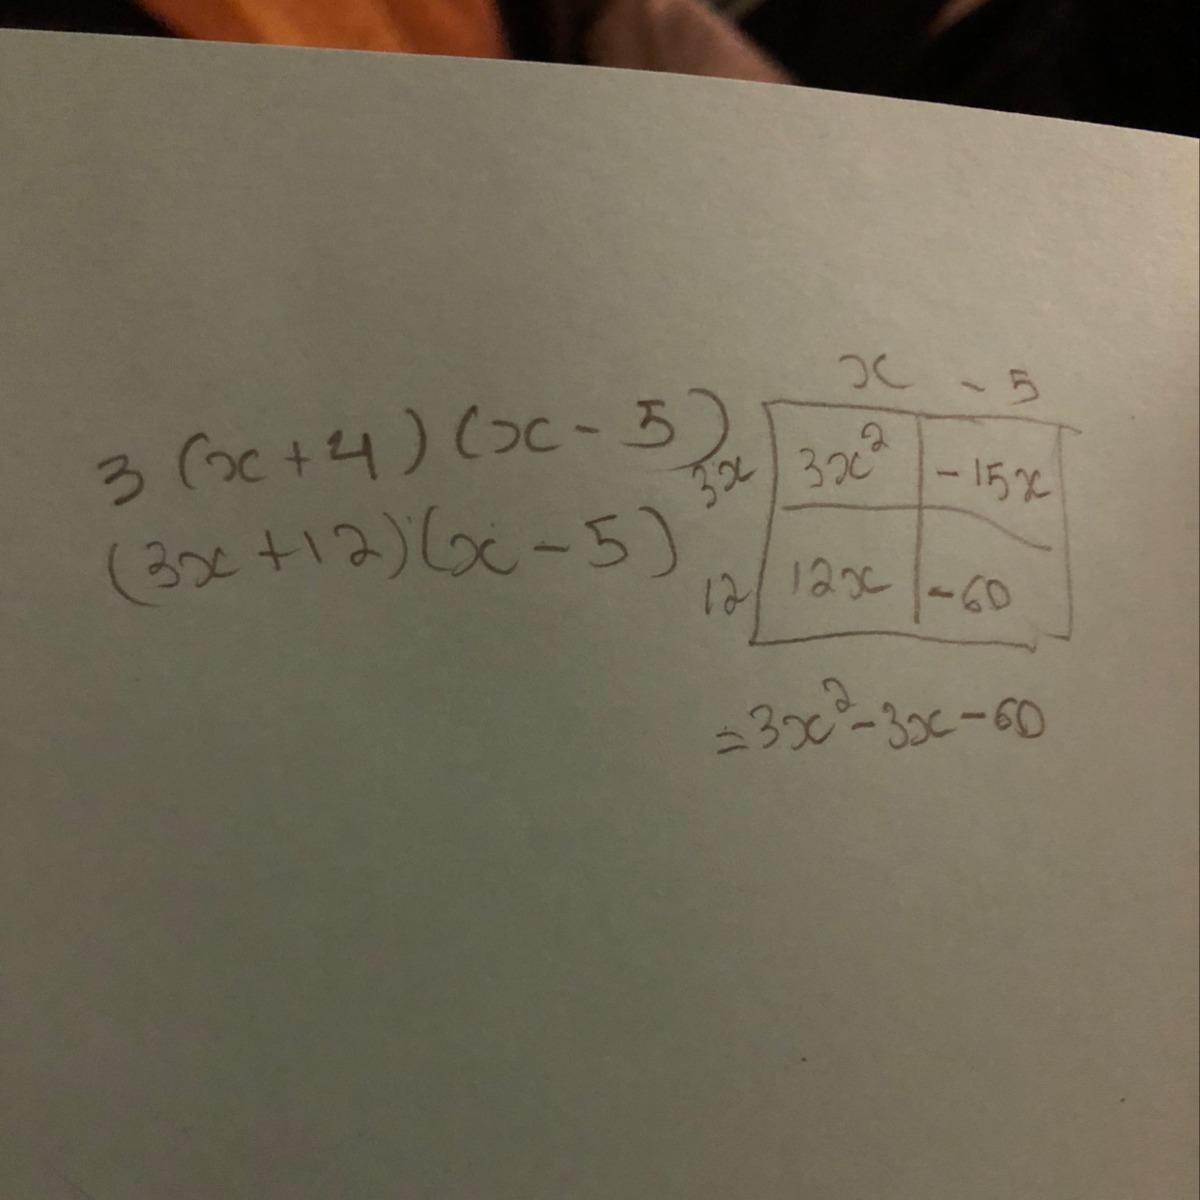 3(x+4)(x-5)
(3x+12)(x-5)
x -5
3x 3x² -15x
12 12x -60
=3x²-3x-60